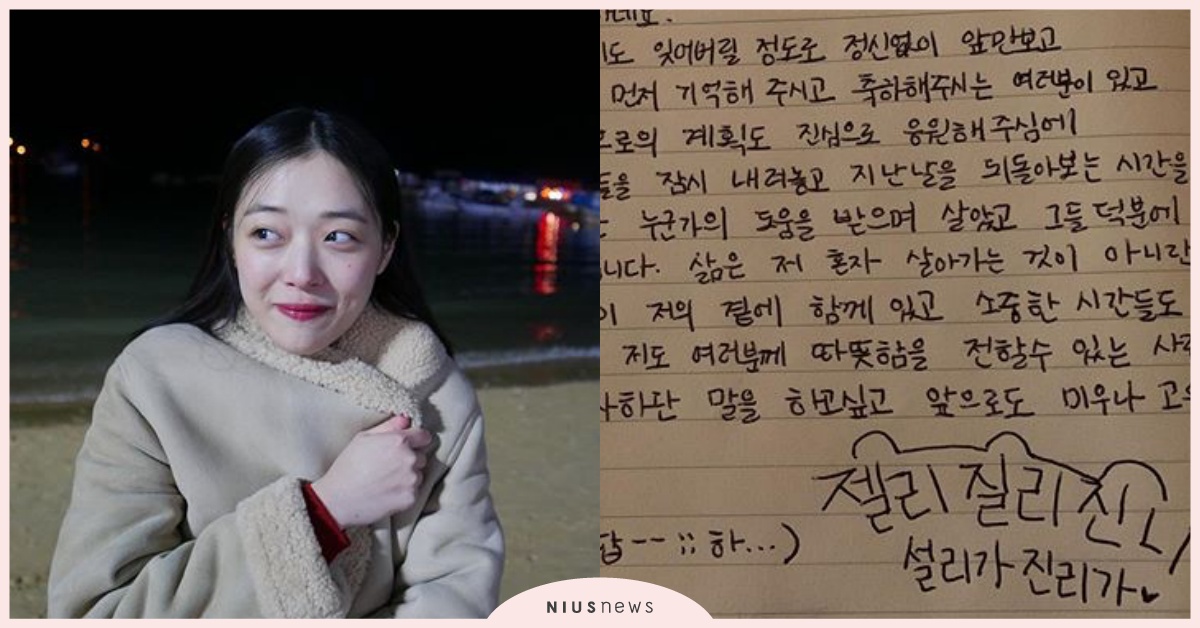 이도 잊어버릴 정도로 정신없이 앞만보고
먼저 기억해 주시고 축하해주시는 여러분이 있고
으로의 계획도 진심으로 응원해 주심에
들을 잠시 내려놓고 지난날을 되돌아보는 시간을
누군가의 도움을 받으며 살았고 그들 덕분에
니다. 삶은 저 혼자 살아가는 것이 아니란
이 저의 곁에 함께 있고 소중한 시간들도
저도 여러분께 따뜻함을 전할수 있는
사하단 말을 하고싶고 앞으로도 미우나
젤리 질리 진
답--;; 하...)
설리가 진리가
NIUSnews